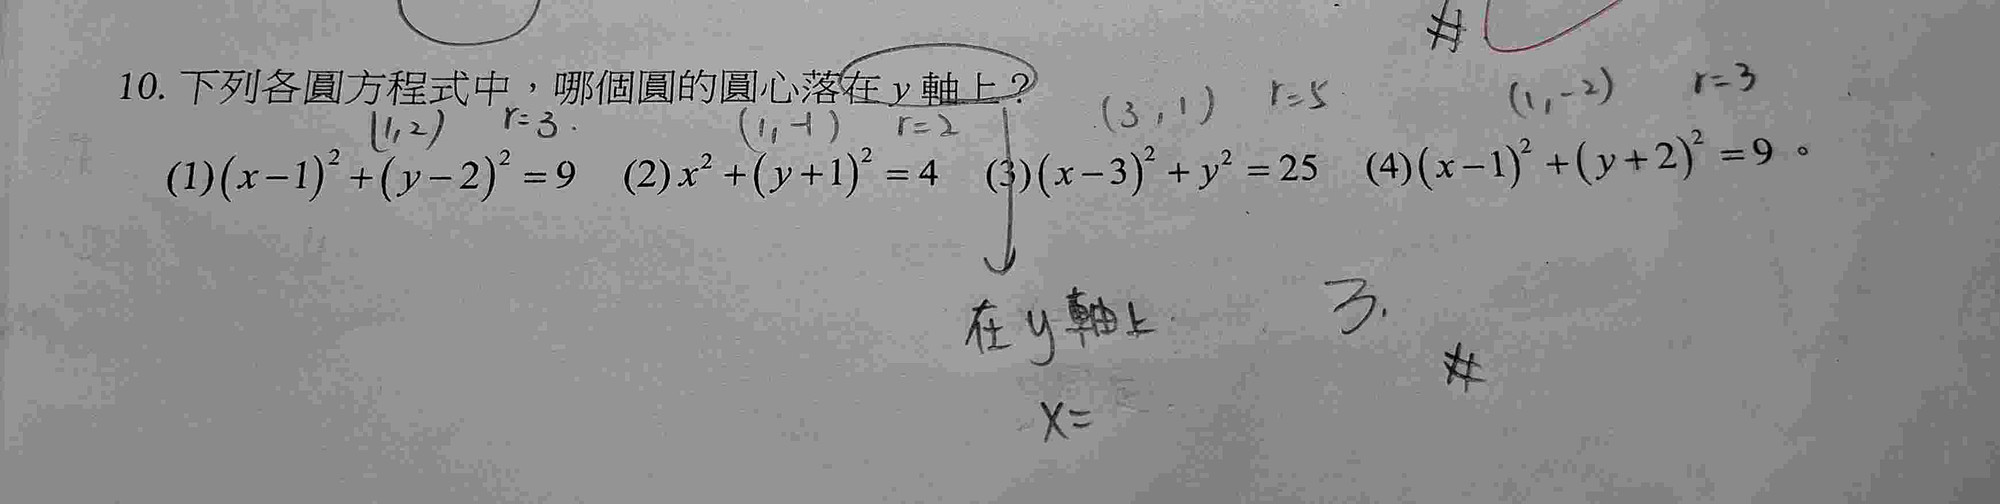 #
10. 下列各圓方程式中，哪個圓的圓心落在 y 軸上？
(1,2) r=3. (1,-1) r=2 (3,1) r=5 (1,-2) r=3
(1)(x-1)²+(y-2)²=9 (2)x²+(y+1)²=4 (3)(x-3)²+y²=25 (4)(x-1)²+(y+2)²=9。
在y軸上 3.
#
x=